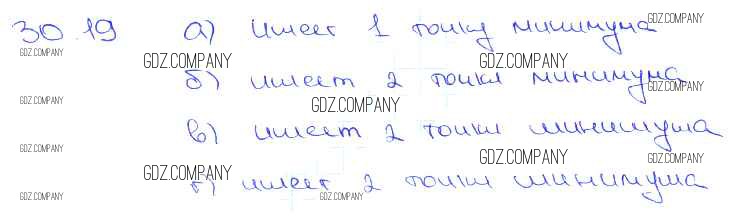 30.19 а) имеет 1 точку минимума
GDZ.COMPANY
GDZ.COMPANY GDZ.COMPANY GDZ.COMPANY
б) имеет 2 точки минимума
GDZ.COMPANY
GDZ.COMPANY GDZ.COMPANY
в) имеет 2 точки минимума
GDZ.COMPANY GDZ.COMPANY GDZ.COMPANY
GDZ.COMPANY
г) имеет 2 точки минимума
GDZ.COMPANY GDZ.COMPANY